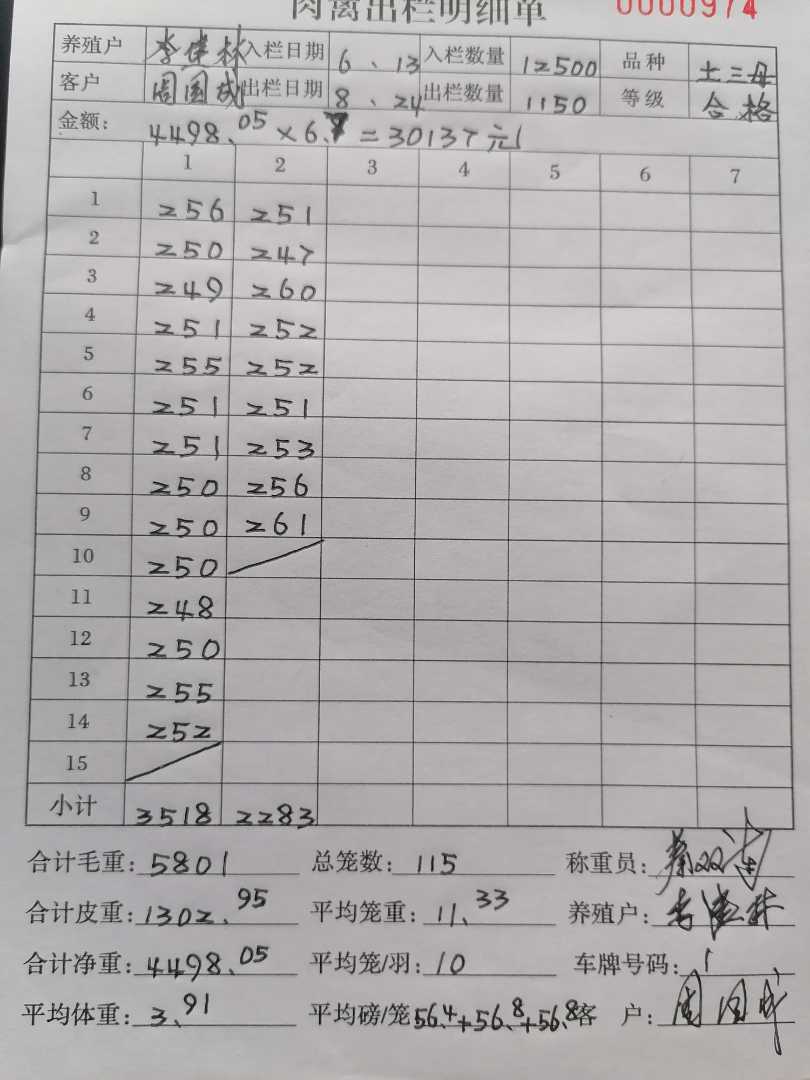 肉禽出栏明细单 0000974
养殖户 李建林 入栏日期 6、13 入栏数量 12500 品种 土三母
客户 周国成 出栏日期 8、24 出栏数量 1150 等级 合格
金额: 4498.05×6.7=30137元
1 2 3 4 5 6 7
1 256 251
2 250 247
3 249 260
4 251 252
5 255 252
6 251 251
7 251 253
8 250 256
9 250 261
10 250
11 248
12 250
13 255
14 252
15
小计 3518 2283
合计毛重: 5801 总笼数: 115 称重员:
合计皮重: 1302.95 平均笼重: 11.33 养殖户: 李建林
合计净重: 4498.05 平均笼/羽: 10 车牌号码:
平均体重: 3.91 平均磅/笼 56.4+56.8+56.8 客 户: 周国成